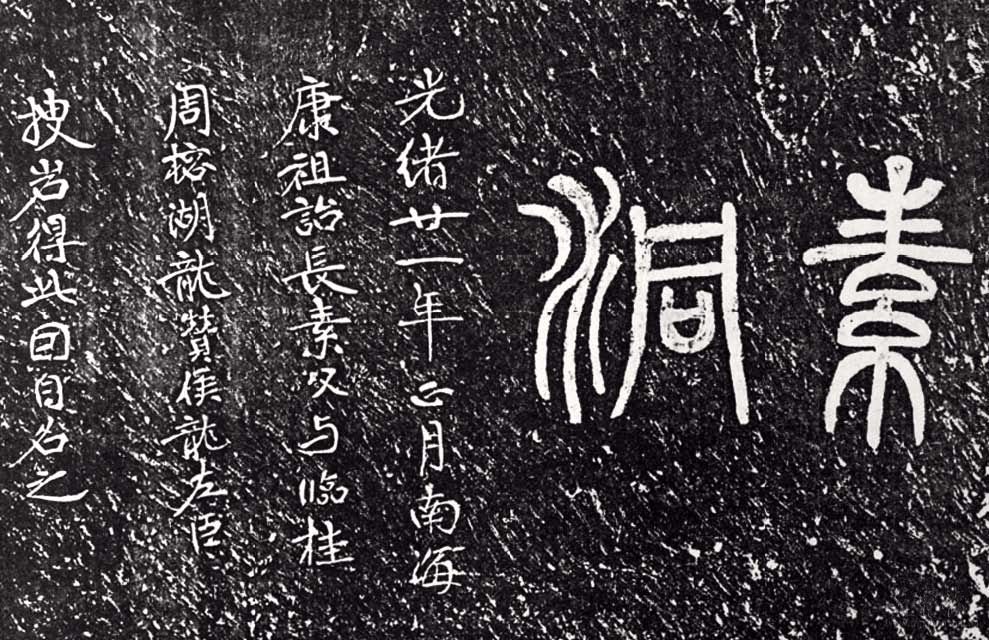 素洞
光緒廿一年正月南海
康祖詒長素父与臨桂
周榕湖龍贊侯龍左臣
搜岩得此因自名之